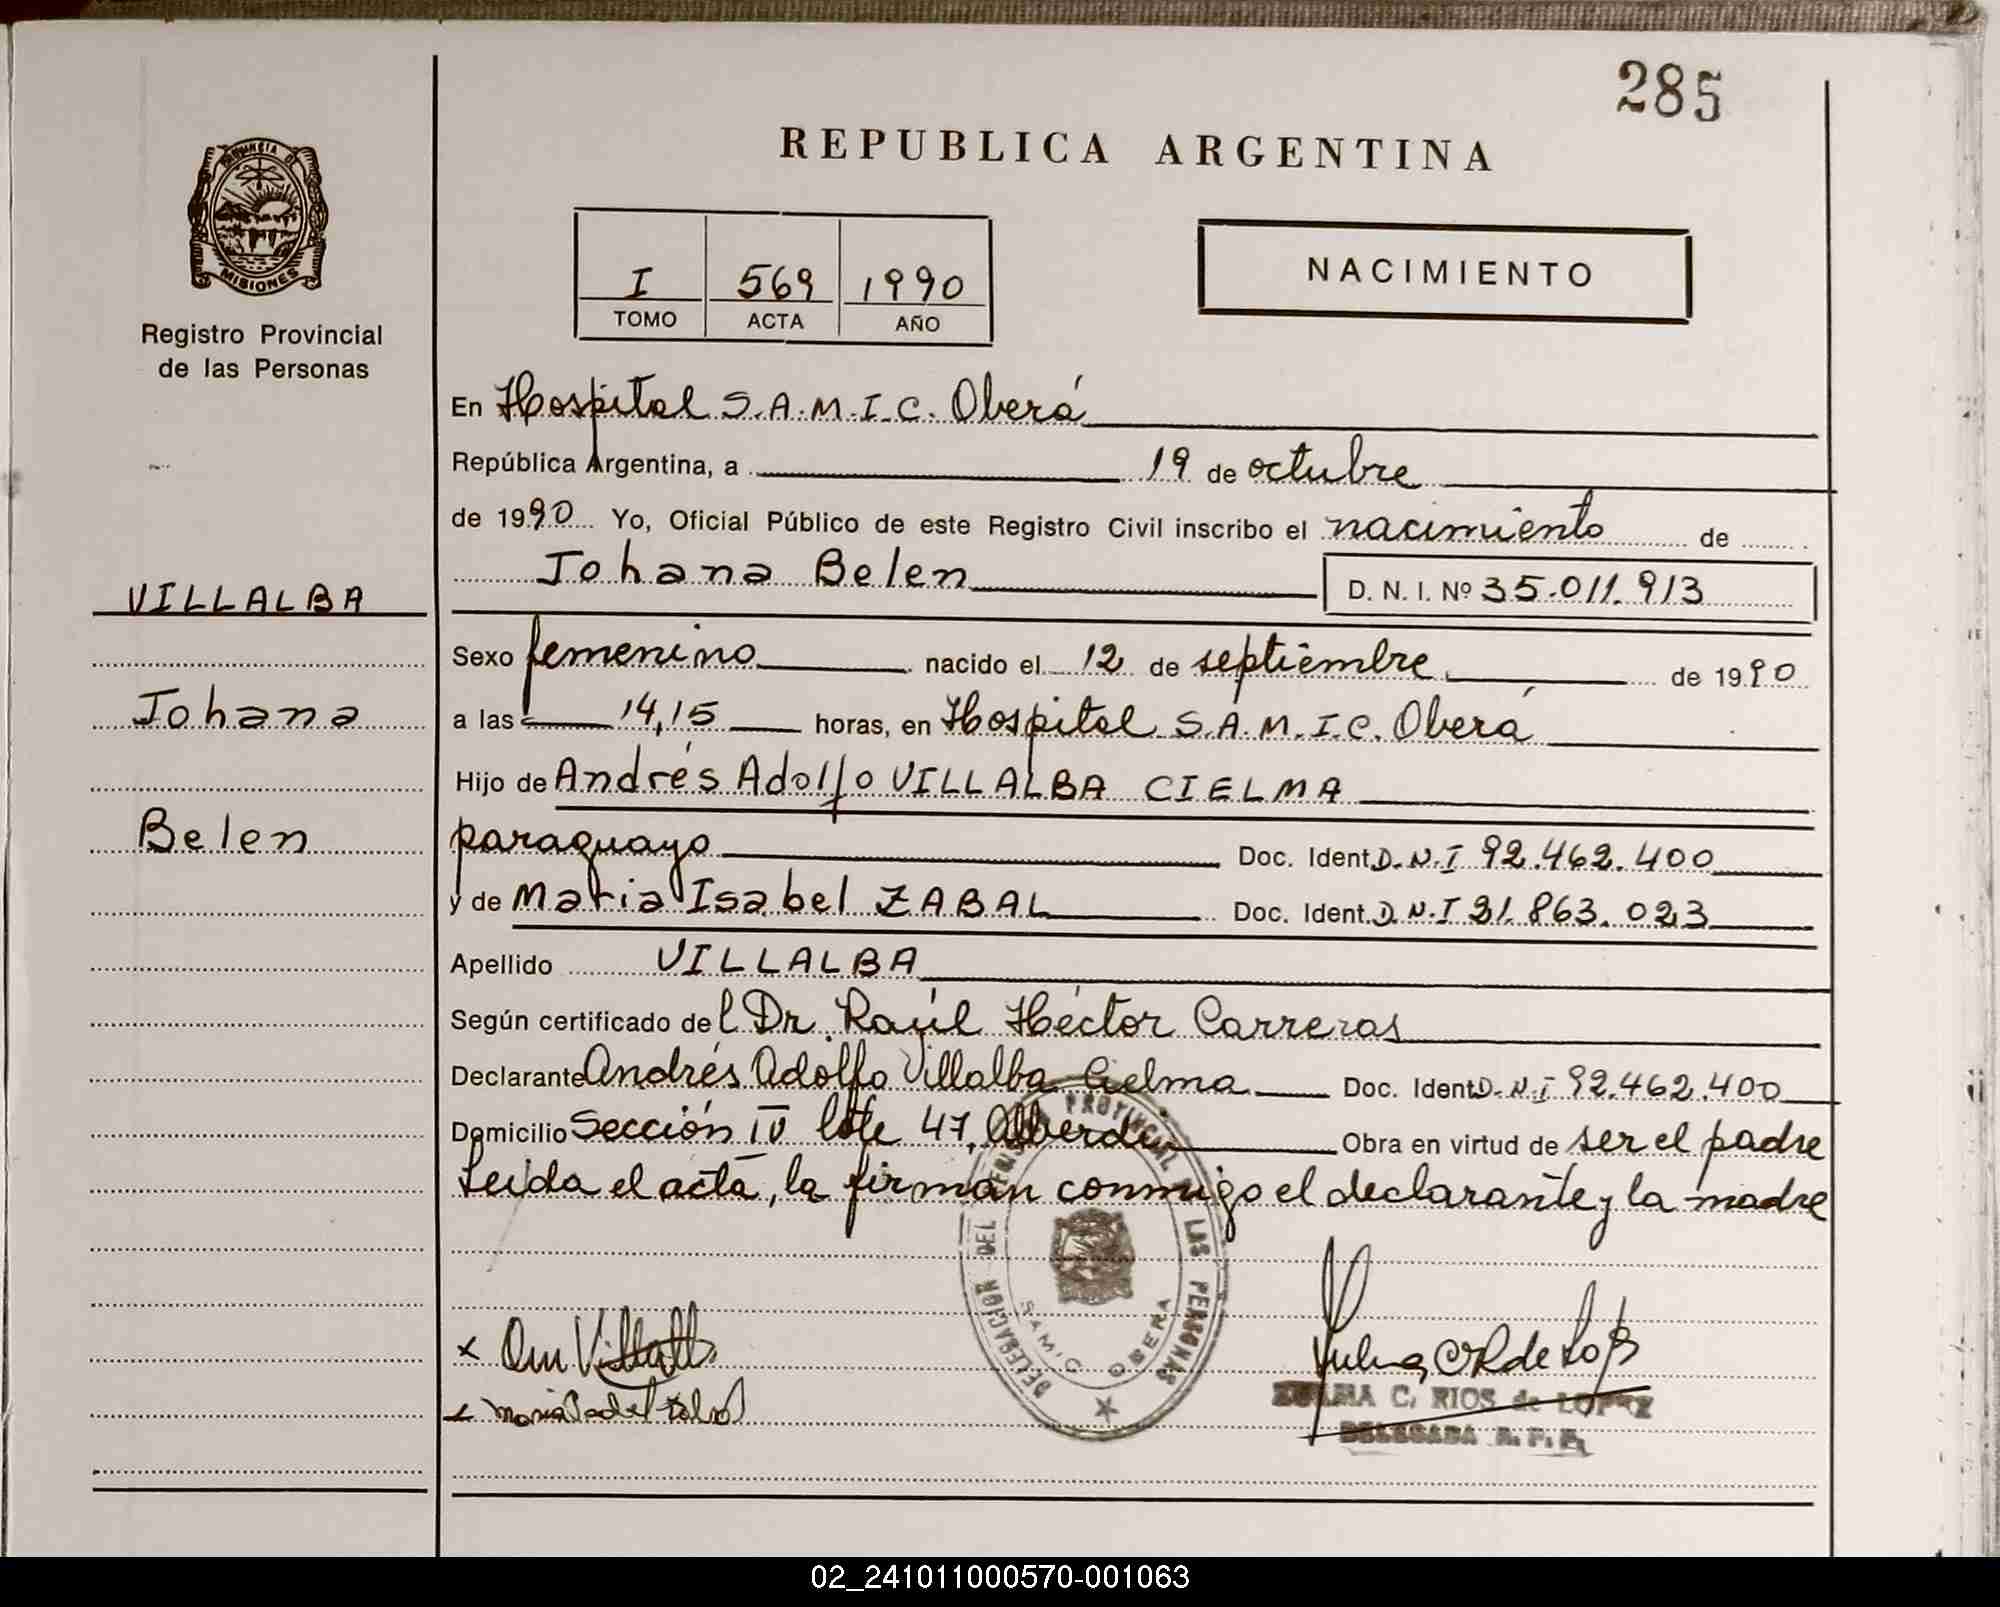 285
REPUBLICA ARGENTINA
PROVINCIA DE
MISIONES
Registro Provincial
de las Personas
I 569 1990
TOMO ACTA AÑO
NACIMIENTO
En Hospital S.A.M.I.C. Oberá
República Argentina, a 19 de octubre
de 1990 Yo, Oficial Público de este Registro Civil inscribo el nacimiento de
Johana Belen D. N. I. Nº 35.011.913
VILLALBA
Johana
Belen
Sexo femenino nacido el 12 de septiembre de 1990
a las 14,15 horas, en Hospital S.A.M.I.C. Oberá
Hijo de Andrés Adolfo VILLALBA CIELMA
paraguayo Doc. Ident. D.N.I 92.462.400
y de Maria Isabel ZABAL Doc. Ident. D.N.I 21.863.023
Apellido VILLALBA
Según certificado del Dr. Raúl Héctor Carreras
Declarante Andrés Adolfo Villalba Cielma Doc. Ident. D.N.I 92.462.400
Domicilio Sección IV lote 47, Alberdi Obra en virtud de ser el padre
Leida el acta, la firman conmigo el declarante y la madre
DELEGACION DEL REGISTRO PROVINCIAL LAS PERSONAS
SAMIC OBERA
ZULMA C. RIOS de LOPEZ
DELEGADA R. P. P.
02_241011000570-001063